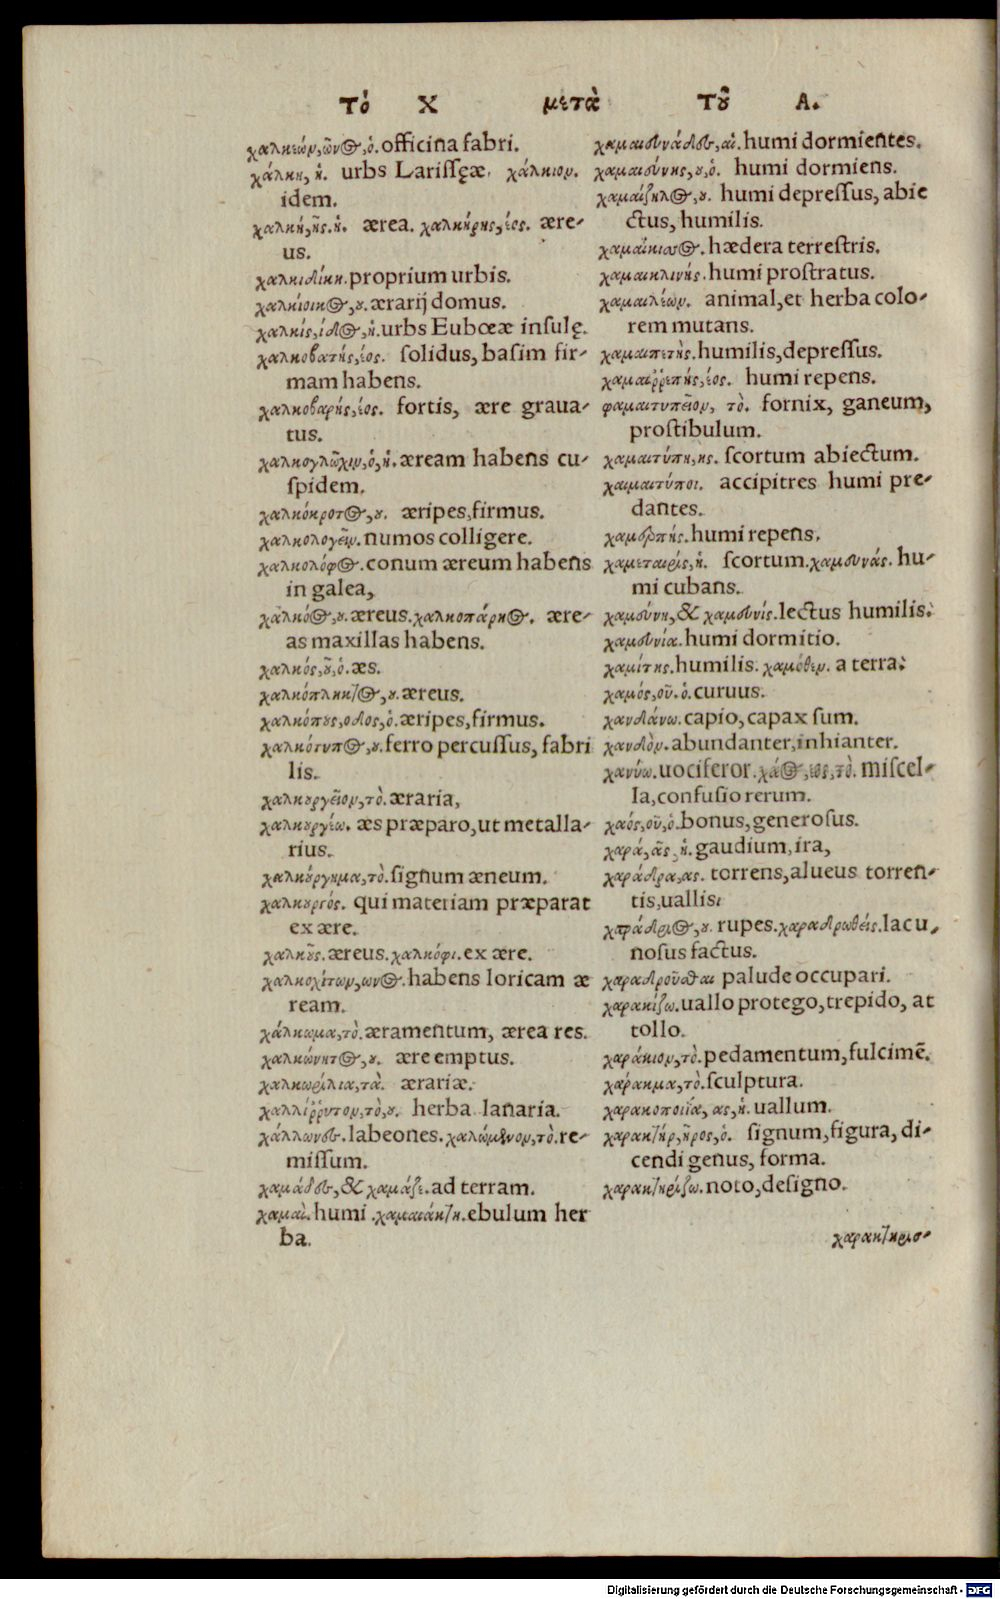 Τὸ Χ μετὰ Τοῦ Α.
χαλκεών, ῶνος, ὁ. officina fabri.
χάλκη, ἡ. urbs Larissęæ. χάλκιον.
idem.
χαλκῆ, ῆς. ἡ. ærea. χαλκήρης, έος. ære-
us.
χαλκιδίκη. proprium urbis.
χαλκίοικος, ου. ærarij domus.
χαλκίς, ίδος, ἡ. urbs Eubœæ insulę.
χαλκοβατής, έος. solidus, basim fir-
mam habens.
χαλκοβαρής, έος. fortis, ære graua-
tus.
χαλκογλῶχιν, ὁ, ἡ. æream habens cu-
spidem.
χαλκόκροτος, ου. æripes, firmus.
χαλκολογεῖν. numos colligere.
χαλκολόφος. conum æreum habens
in galea,
χαλκόος, ου. æreus. χαλκοπάρηος. ære-
as maxillas habens.
χαλκός, οῦ, ὁ. æs.
χαλκόπληκτος, ου. æreus.
χαλκόπους, οδος, ὁ. æripes, firmus.
χαλκότυπος, ου. ferro percussus, fabri
lis.
χαλκουργεῖον, τὸ. æraria,
χαλκουργέω. æs præparo, ut metalla-
rius.
χαλκούργημα, τὸ. signum æneum.
χαλκουργός. qui materiam præparat
ex ære.
χαλκοῦς. æreus. χαλκόφι. ex ære.
χαλκοχίτων, ωνος. habens loricam æ
ream.
χάλκωμα, τὸ. æramentum, ærea res.
χαλκώνητος, ου. ære emptus.
χαλκωρίλια, τὰ. ærariæ.
χαλλίῤῥυτον, τὸ, ου. herba lanaria.
χάλλωνες. labeones. χαλώμενον, τὸ. re-
missum.
χαμάδες, & χαμάζε. ad terram.
χαμαὶ. humi. χαμαιάκτη. ebulum her
ba.
χαμαιευνάδες, αἱ. humi dormientes.
χαμαιεύνης, ου, ὁ. humi dormiens.
χαμαίζηλος, ου. humi depressus, abie
ctus, humilis.
χαμαίκισσος. hædera terrestris.
χαμαικλινής. humi prostratus.
χαμαιλέων. animal, et herba colo-
rem mutans.
χαμαιπετὴς. humilis, depressus.
χαμαιῤῥεπής, έος. humi repens.
φαμαιτυπεῖον, τὸ. fornix, ganeum,
prostibulum.
χαμαιτύπη, ης. scortum abiectum.
χαιμαιτύποι. accipitres humi pre-
dantes.
χαμερπής. humi repens.
χαμεταιρίς, ἡ. scortum. χαμευνάς. hu-
mi cubans.
χαμεύνη, & χαμευνίς. lectus humilis.
χαμευνία. humi dormitio.
χαμίτης. humilis. χαμόθεν. a terra.
χαμός, οῦ. ὁ. curuus.
χανδάνω. capio, capax sum.
χανδὸν. abundanter, inhianter.
χανύω. uociferor. χάος, εος, τὸ. miscel-
la, confusio rerum.
χαός, οῦ, ὁ. bonus, generosus.
χαρά, ᾶς, ἡ. gaudium, ira,
χαράδρα, ας. torrens, alueus torren-
tis, uallis.
χαράδριος, ου. rupes. χαραδρωθείς. lacu,
nosus factus.
χαραδροῦσθαι palude occupari.
χαρακίζω. uallo protego, trepido, at
tollo.
χαράκιον, τὸ. pedamentum, fulcimē.
χάρακμα, τὸ. sculptura.
χαρακοποιία, ας, ἡ. uallum.
χαρακτήρ, ῆρος, ὁ. signum, figura, di-
cendi genus, forma.
χαρακτηρίζω. noto, designo.
χαρακτηρισ-
Digitalisierung gefördert durch die Deutsche Forschungsgemeinschaft - DFG